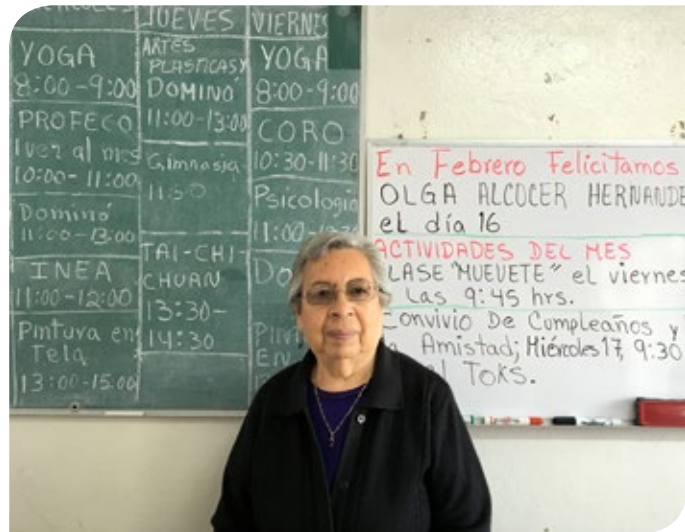 YOGA
8:00-9:00
PROFECO
1 vez al mes
10:00-11:00
Dominó
11:00-13:00
INEA
11:00-12:00
Pintura en
Tela
13:00-15:00
JUEVES
ARTES
PLASTICAS Y
DOMINÓ
11:00-13:00
Gimnasia
11:30
TAI-CHI-
CHUAN
13:30-
14:30
VIERNES
YOGA
8:00-9:00
CORO
10:30-11:30
Psicologia
11:00
Do
EN
En Febrero Felicitamos
OLGA ALCOCER HERNANDE
el día 16
ACTIVIDADES DEL MES
LASE "MUEVETE" el viernes
Las 9:45 hrs.
Convivio De Cumpleaños y
Amistad; Miércoles 17, 9:30
l TOKS.